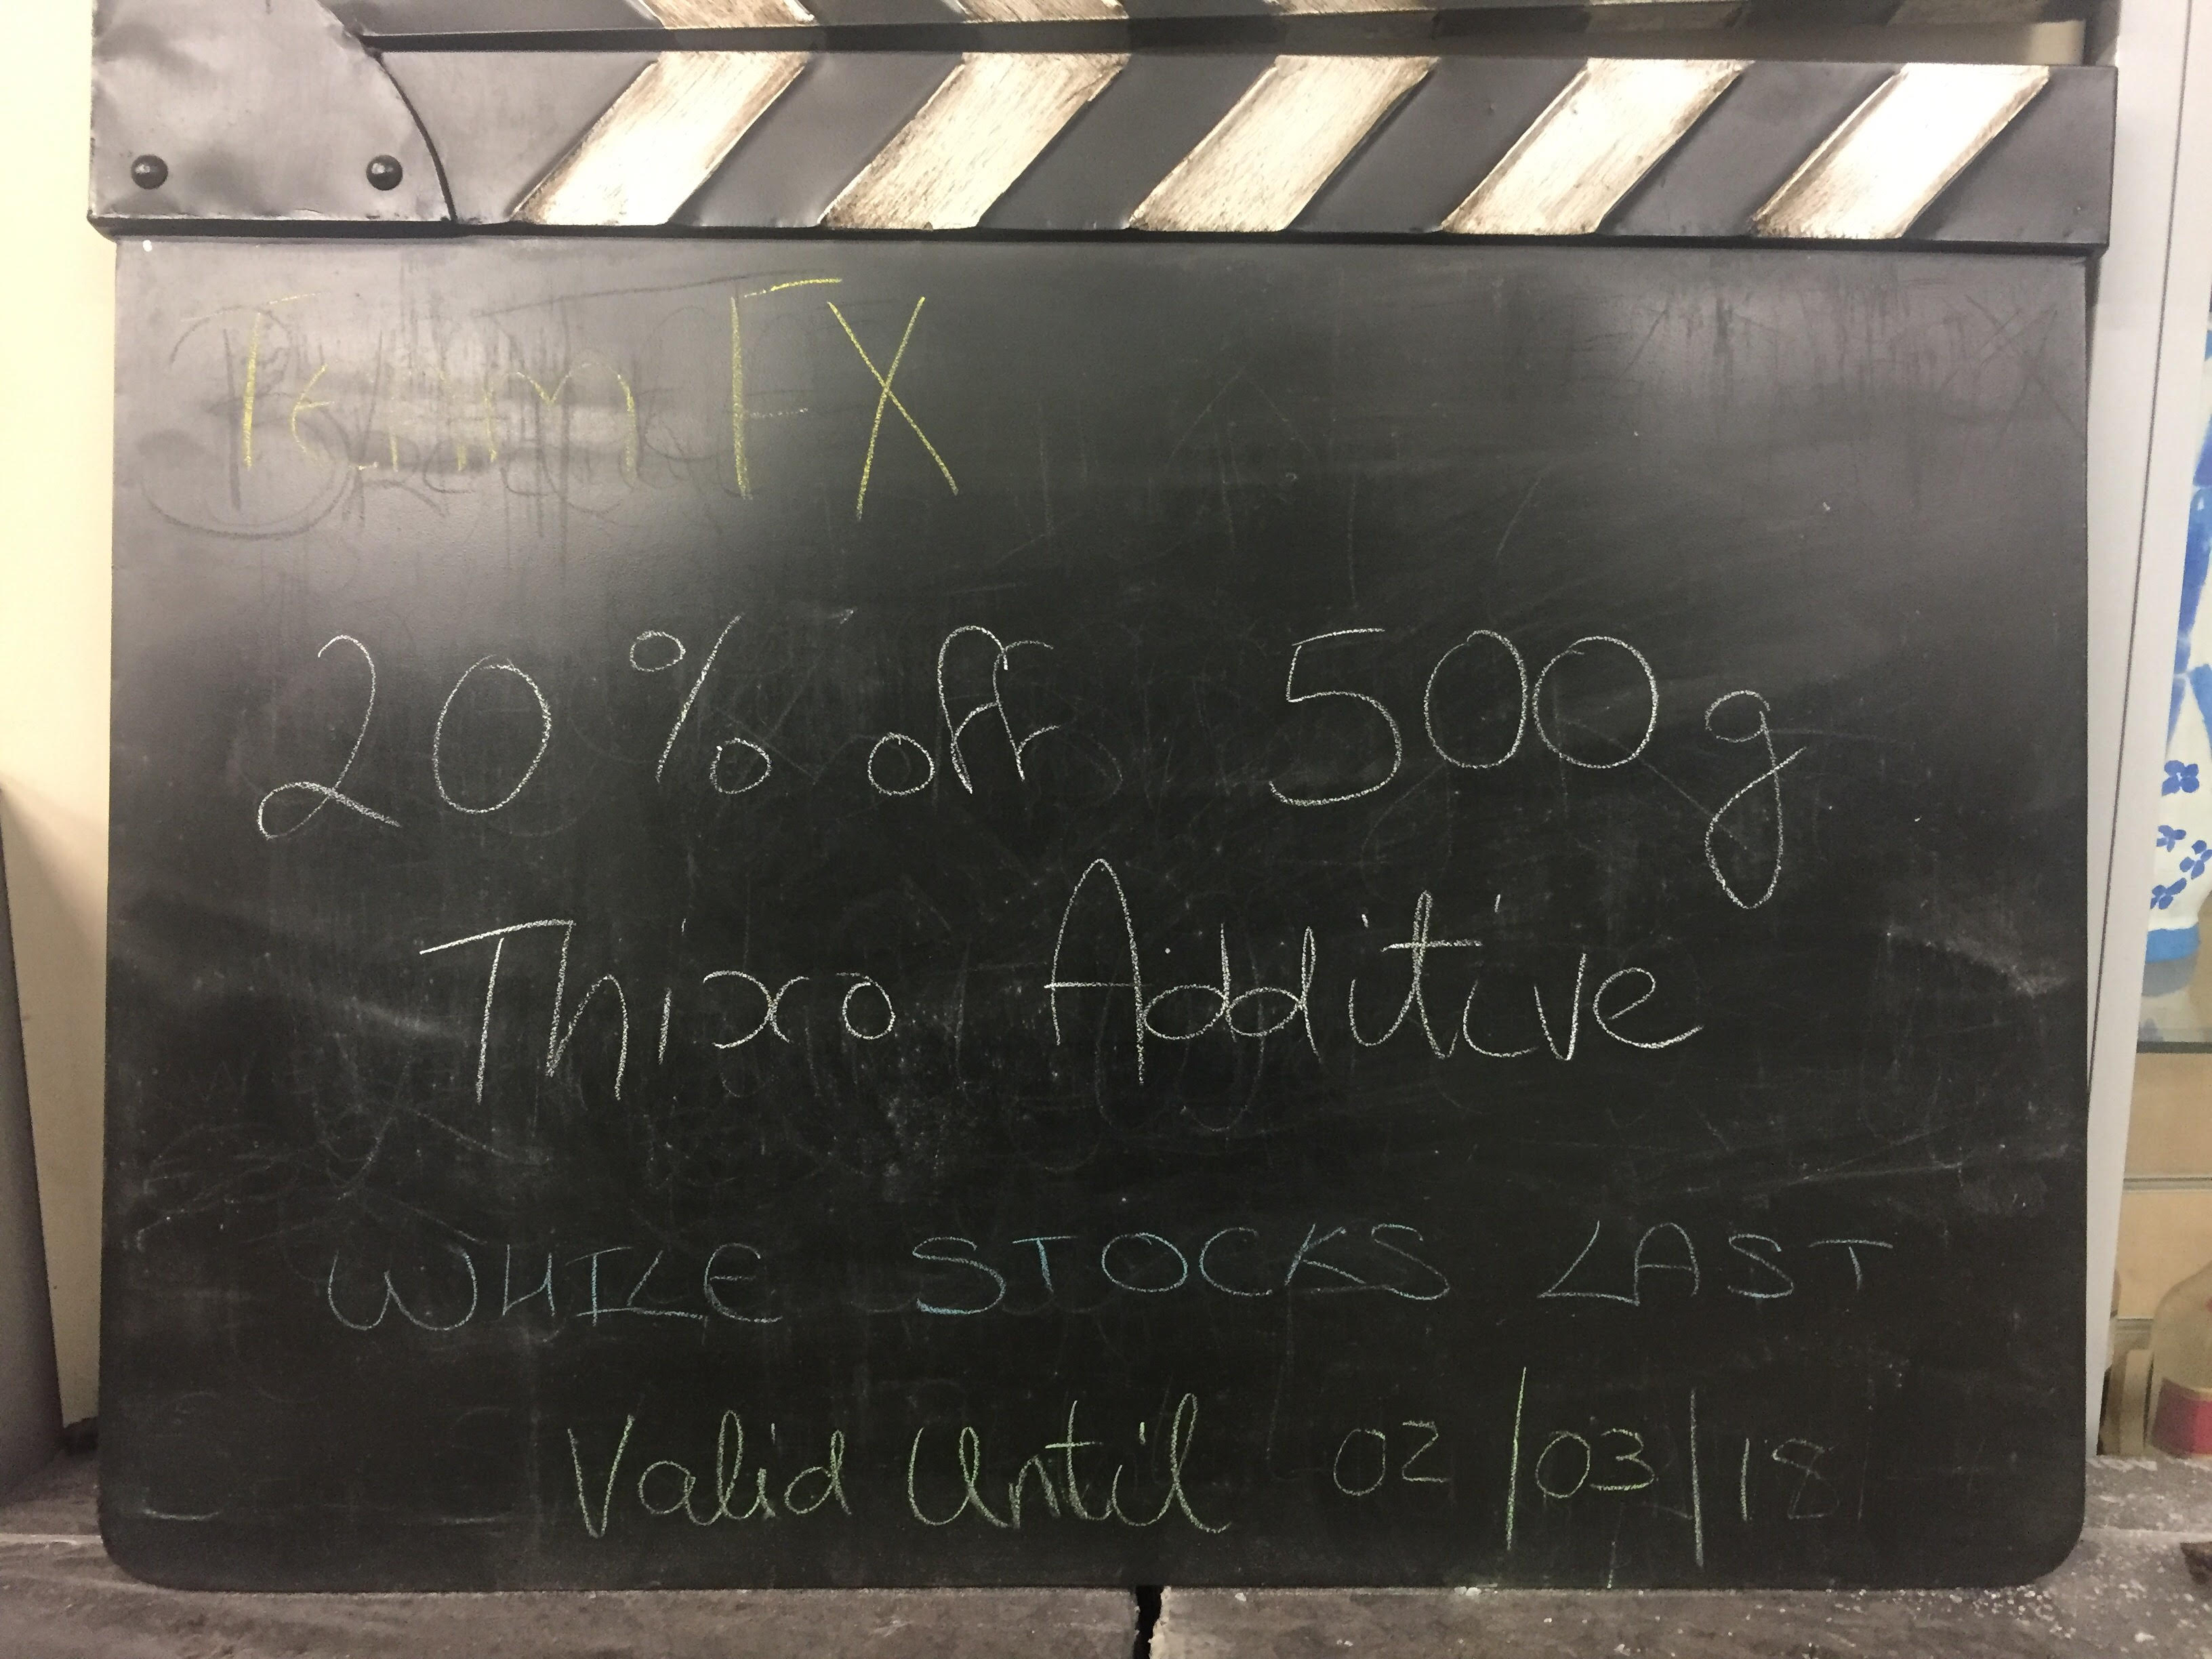 Team FX
20% off 500g
Thixo Additive
WHILE STOCKS LAST
Valid Until 02/03/18